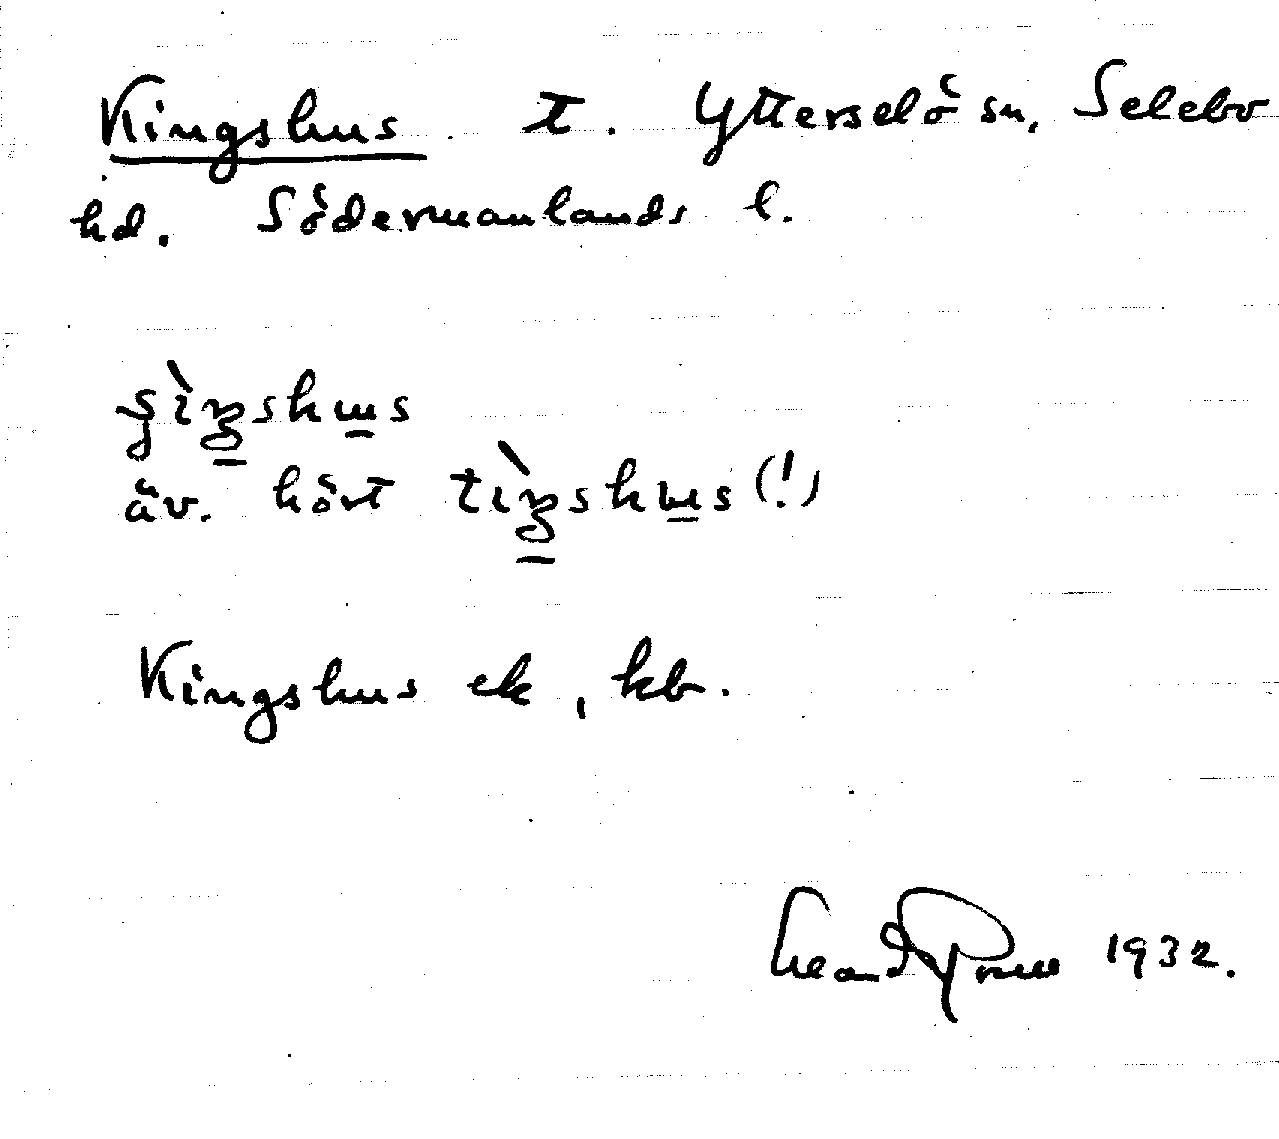 Kingshus. t. Ytterselö sn, Selebo
hd. Södermanlands l.
äv. hört tìŋshus (!)
Kingshus ek, kb.
1932.